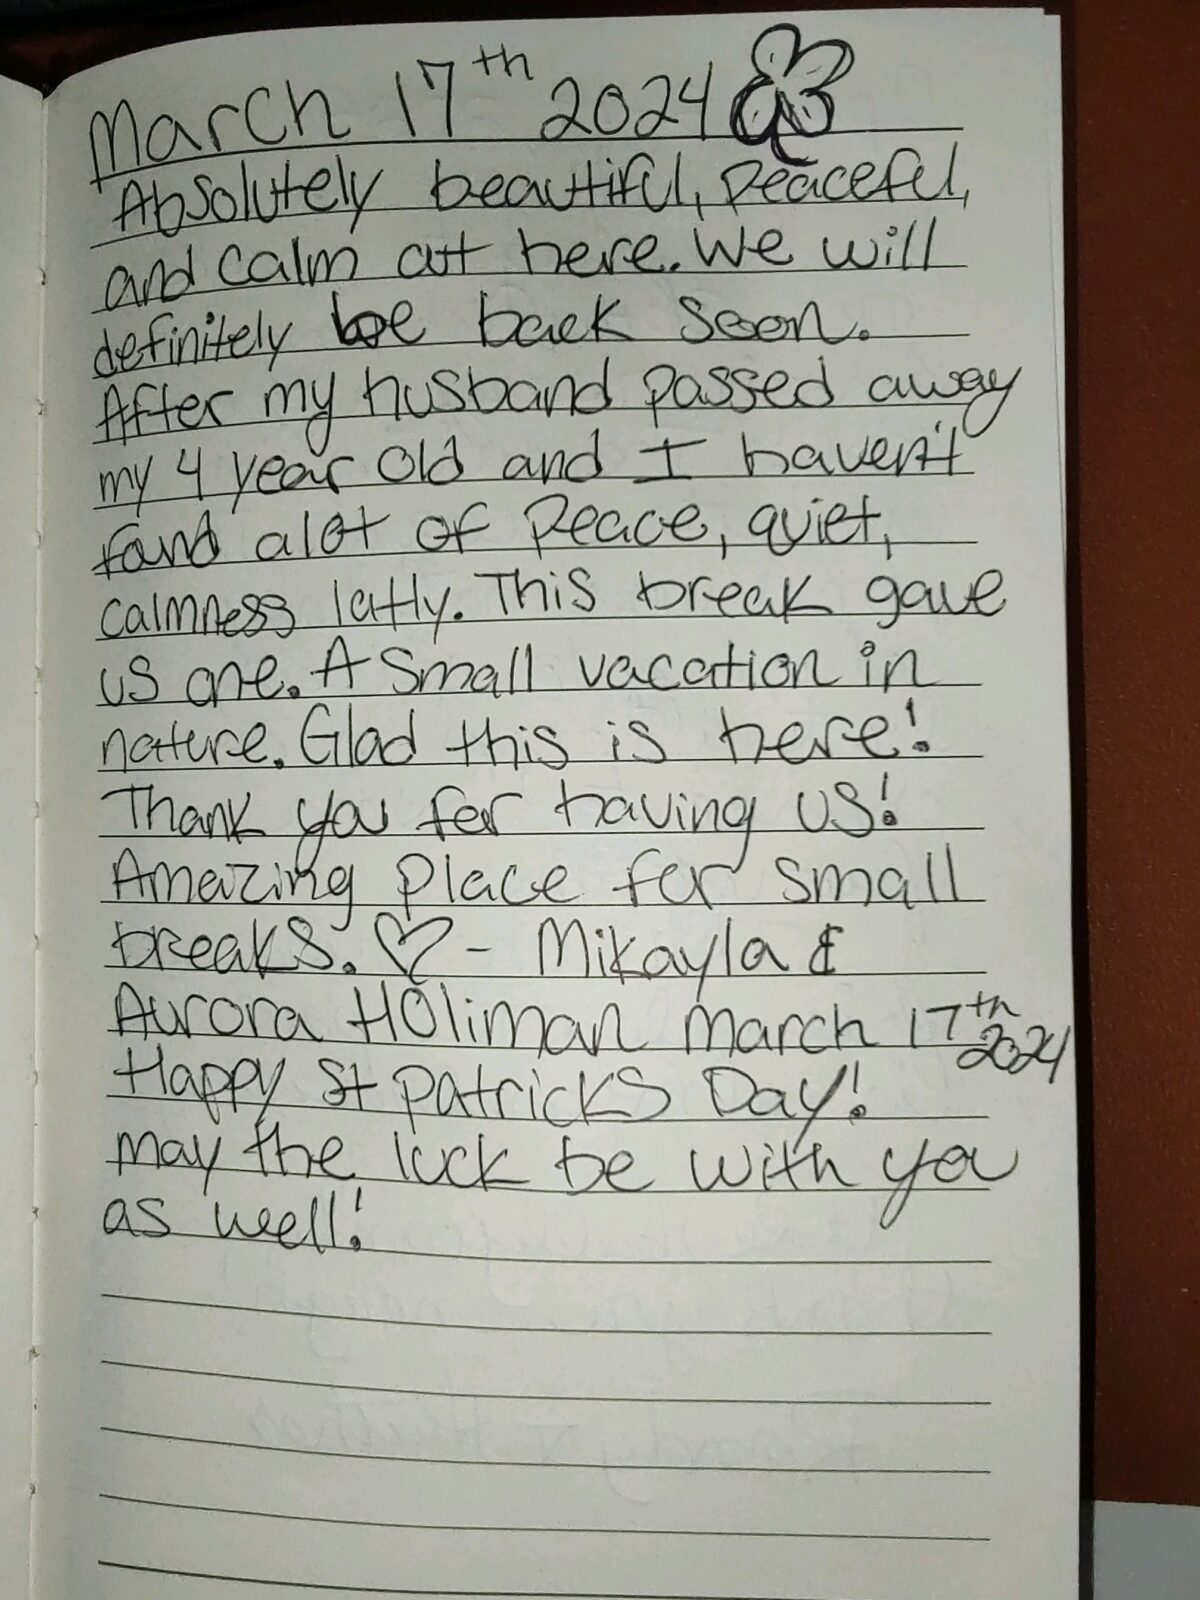 March 17th 2024
Absolutely beautiful, peaceful,
and calm out here. We will
definitely be back soon.
After my husband passed away
my 4 year old and I haven't
found alot of peace, quiet,
calmness latly. This break gave
us one. A small vacation in
nature. Glad this is here!
Thank you for having us!
Amazing place for small
breaks. ♡ - Mikayla &
Aurora Holiman March 17th 2024
Happy St Patricks Day!
may the luck be with you
as well!